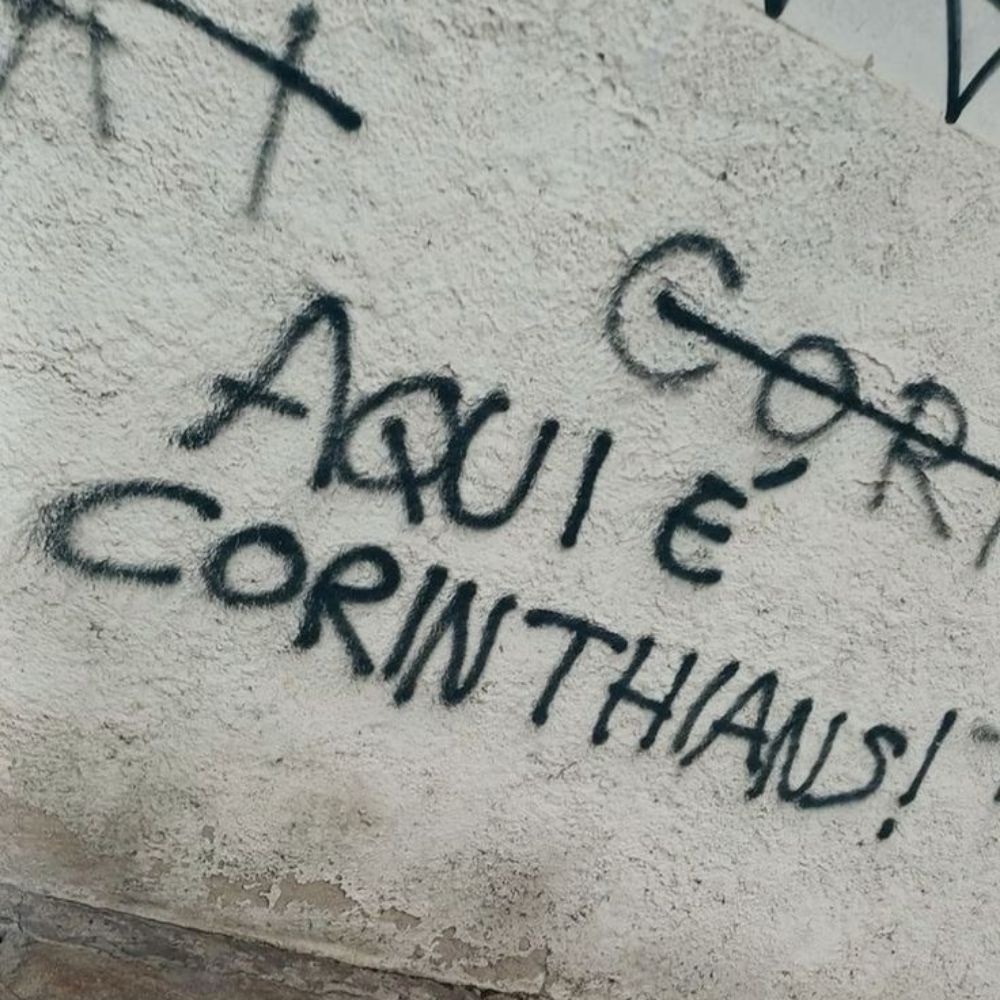 CORI
AQUI É
CORINTHIANS!